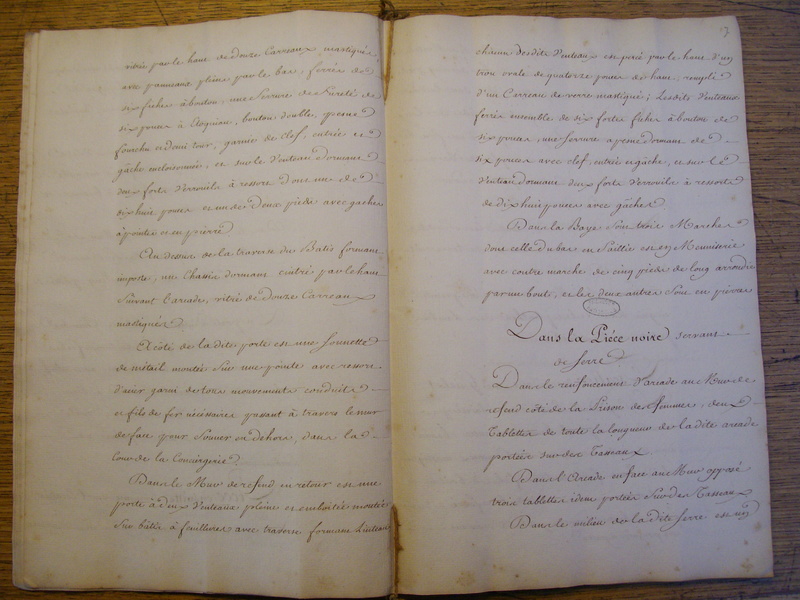 vitrée par le haut de douze Carreaux mastiqués
avec panneaux pleins par le bas, ferrée de
six fiches à bouton, une Serrure de Sureté de
six pouces à bouton double, 
fourchu et demi tour, garnie de clef, entrée et
gâche encloisonnée, et sur le Venteau dormant
deux forts Verrouils à ressort dont un de
dix huit pouces et un de deux pieds avec gaches
à pointes et en pierre
Au dessus de la traverse du Batis formant
imposte, un Chassis dormant cintré par le haut
Suivant l'arcade, vitré de douze Carreaux
mastiqués
A côté de la dite porte est une Sonnette
de métail montée Sur une pointe avec ressort
d'acier garni de tous mouvements conduits
et fils de fer nécessaires passant à travers le mur
de face pour Sonner en dehors, dans la
Cour de la Conciergerie
Dans le Mur de refend en retour est une
porte à deux Venteaux pleine et emboitée montée
Sur bâtis à feuillures avec traverse formant Linteau
17
chacun desdits Venteaux est percé par le haut d'un
trou ovale de quatorze pouces de haut, rempli
d'un Carreau de verre mastiqué; Lesdits Venteaux
ferrés ensemble de six fortes fiches à bouton de
six pouces, une serrure a pene dormant de
six pouces avec clef, entrée et gâche, et sur le
Venteau dormant deux forts Verrouils à ressorts
de dix huit pouces avec gâches
Dans la Baye Sont trois Marches
dont celle du bas en Saillie est en Menuiserie
avec contre marche de cinq pieds de long arrondie
par un bout, et les deux autres Sont en pierre
Dans la Piéce noire servant
de Serre
Dans le renfoncement d'arcade au Mur de
refend côté de la Prison des femmes, deux
Tablettes de toute la longueur de la dite arcade
portées sur des Tasseaux
Dans l'Arcade en face au Mur opposé
trois tablettes idem portées Sur des Tasseaux
Dans le milieu de la dite Serre est un